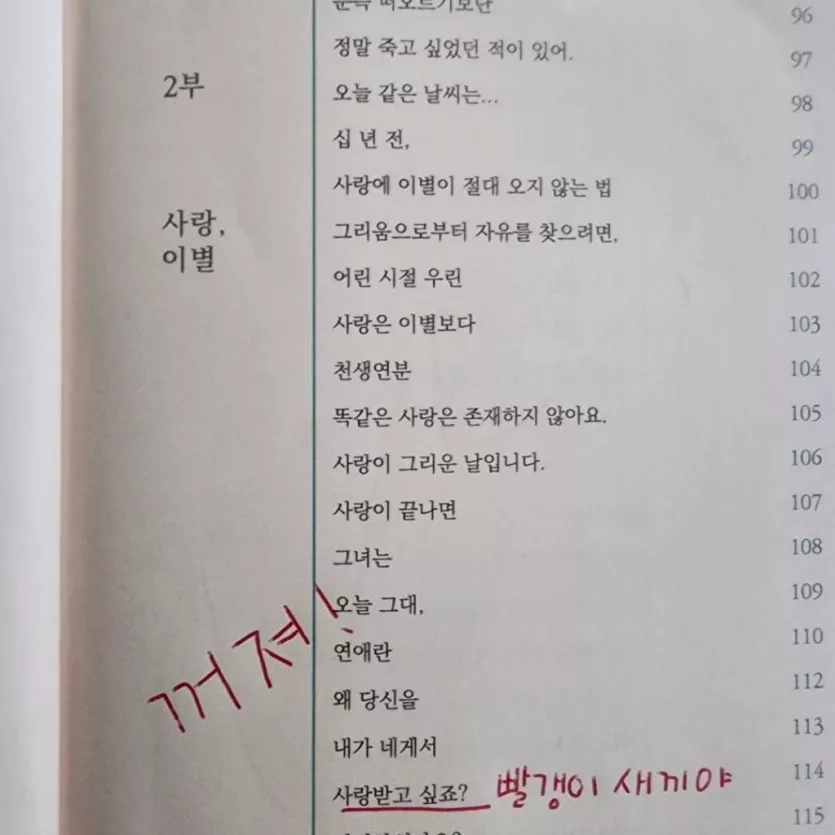 2부
사랑,
이별
문득 떠오르기보단
96
정말 죽고 싶었던 적이 있어.
97
오늘 같은 날씨는...
98
십 년 전,
99
사랑에 이별이 절대 오지 않는 법
100
그리움으로부터 자유를 찾으려면,
101
어린 시절 우린
102
사랑은 이별보다
103
천생연분
104
똑같은 사랑은 존재하지 않아요.
105
사랑이 그리운 날입니다.
106
사랑이 끝나면
107
그녀는
108
오늘 그대,
109
연애란
110
왜 당신을
112
내가 네게서
113
사랑받고 싶죠? 빨갱이 새끼야
114
115
꺼져!